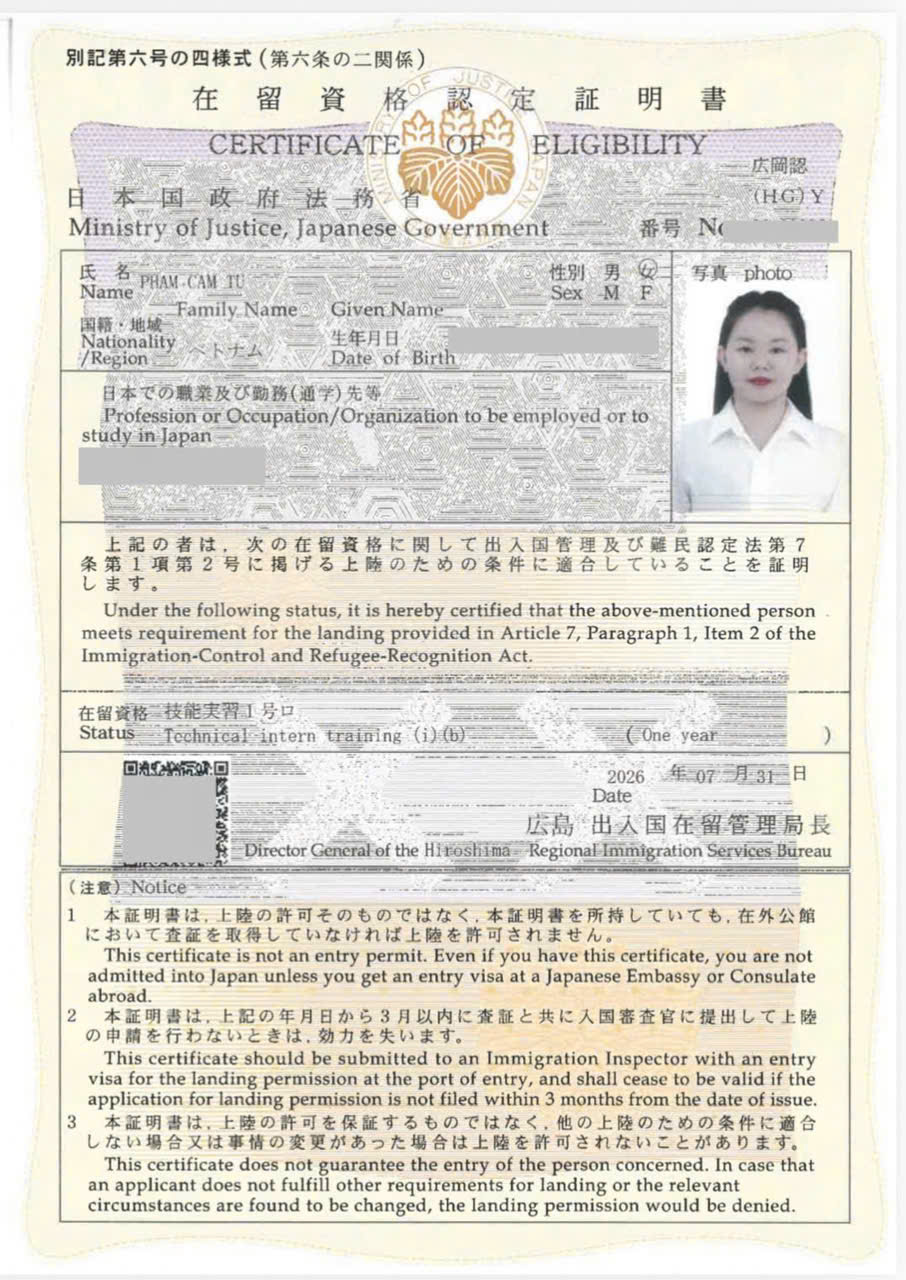 別記第六号の四様式(第六条の二関係)
在留資格認定証明書
CERTIFICATE OF ELIGIBILITY
MINISTRY OF JUSTICE JAPAN
広岡認
(HG)Y
日本国政府法務省
Ministry of Justice, Japanese Government
番号 No
氏名 PHAM CAM TU
Name
Family Name Given Name
性別 男 女
Sex M F
写真 photo
国籍・地域
Nationality
/Region ベトナム
生年月日
Date of Birth
日本での職業及び勤務(通学)先等
Profession or Occupation/Organization to be employed or to
study in Japan
上記の者は,次の在留資格に関して出入国管理及び難民認定法第7
条第1項第2号に掲げる上陸のための条件に適合していることを証明
します。
Under the following status, it is hereby certified that the above-mentioned person
meets requirement for the landing provided in Article 7, Paragraph 1, Item 2 of the
Immigration-Control and Refugee-Recognition Act.
在留資格 技能実習1号ロ
Status Technical intern training (i)(b) ( One year )
2026 年 07 月 31 日
Date
広島 出入国在留管理局長
Director General of the Hiroshima Regional Immigration Services Bureau
(注意) Notice
1 本証明書は,上陸の許可そのものではなく,本証明書を所持していても,在外公館
において査証を取得していなければ上陸を許可されません。
This certificate is not an entry permit. Even if you have this certificate, you are not
admitted into Japan unless you get an entry visa at a Japanese Embassy or Consulate
abroad.
2 本証明書は,上記の年月日から3月以内に査証と共に入国審査官に提出して上陸
の申請を行わないときは,効力を失います。
This certificate should be submitted to an Immigration Inspector with an entry
visa for the landing permission at the port of entry, and shall cease to be valid if the
application for landing permission is not filed within 3 months from the date of issue.
3 本証明書は,上陸の許可を保証するものではなく,他の上陸のための条件に適合
しない場合又は事情の変更があった場合は上陸を許可されないことがあります。
This certificate does not guarantee the entry of the person concerned. In case that
an applicant does not fulfill other requirements for landing or the relevant
circumstances are found to be changed, the landing permission would be denied.